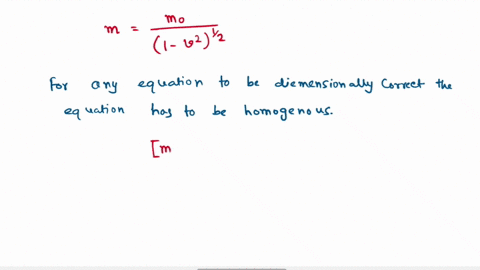 m = m₀ / (1 - v²)^1/2
For any equation to be diemensionally correct the
equation has to be homogenous.
[m